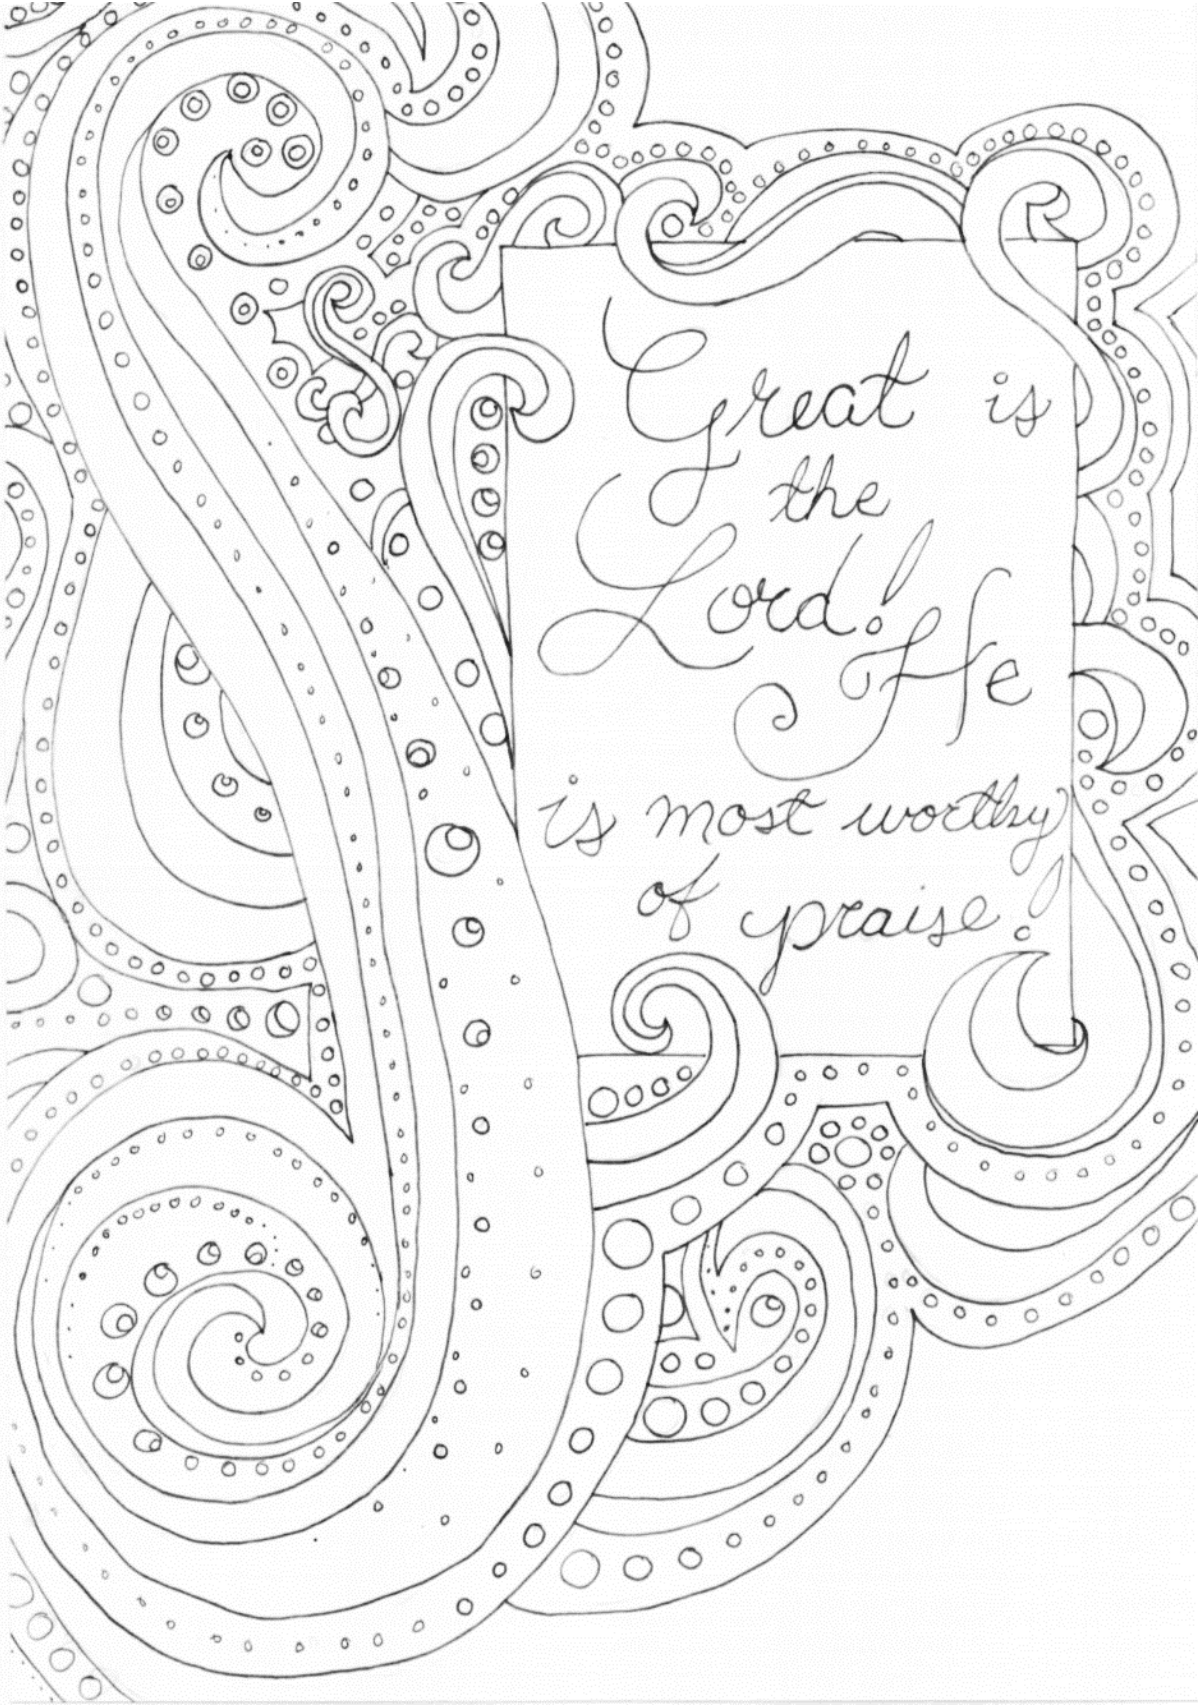 Great is
the
Lord! He
is most worthy
of praise!